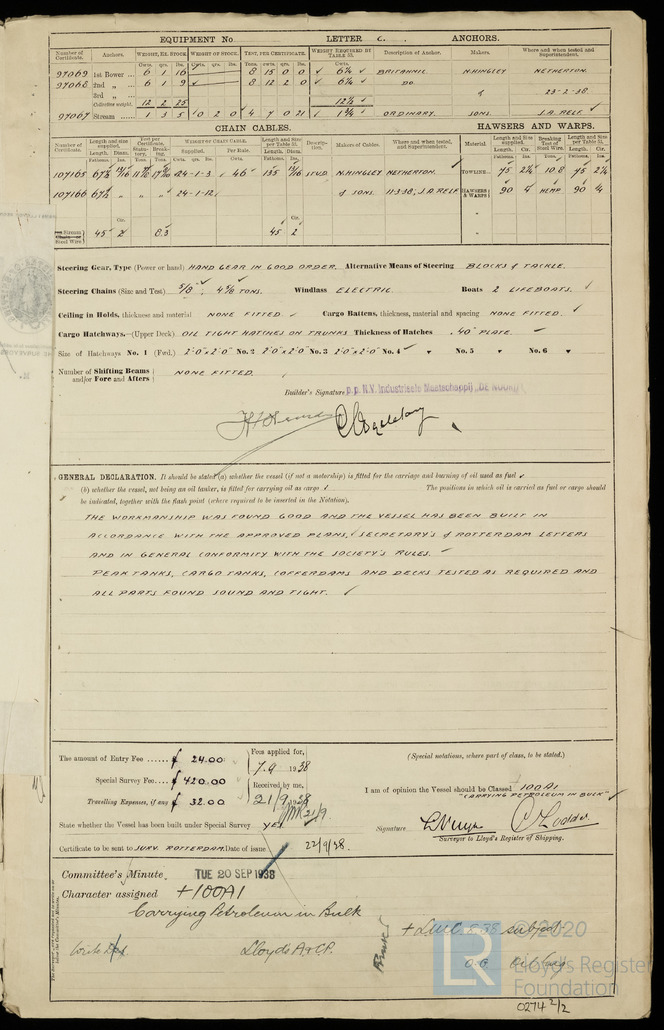 EQUIPMENT No. LETTER C. ANCHORS.
Number of Certificate. Anchors. WEIGHT, EX. STOCK. WEIGHT OF STOCK. TEST, PER CERTIFICATE. WEIGHT REQUIRED BY TABLE 31. Description of Anchor. Makers. Where and when tested and Superintendent.
Cwts. qrs. lbs. Cwts. qrs. lbs. Tons. cwts. qrs. lbs. Cwts.
97069 1st Bower 6 1 16 8 15 0 0 6¼ BRITANNIC N.HINGLEY NETHERTON.
97068 2nd „ 6 1 9 8 12 2 0 6¼ DO.
3rd „ & 23-2-38.
Collective weight. 12 2 25 12½
97067 Stream 1 3 5 0 2 0 4 7 0 21 1¾ ORDINARY. SONS. J.A. RELF.
CHAIN CABLES. HAWSERS AND WARPS.
107165 67½ 24-1-3 46 135 STUD N.HINGLEY NETHERTON. TOWLINE 75 2¼ 10.8 75 2¼
107166 67½ „ „ „ 24-1-12 & SONS. 11-3-38, J.A. RELF HAWSERS & WARPS 90 4 HEMP 90 4
Stream Steel Wire 45 2 8.3 45 2
Steering Gear, Type (Power or hand) HAND GEAR IN GOOD ORDER. Alternative Means of Steering BLOCKS & TACKLE.
Steering Chains (Size and Test) 5/8", 4 5/8 TONS. Windlass ELECTRIC. Boats 2 LIFEBOATS.
Ceiling in Holds, thickness and material NONE FITTED Cargo Battens, thickness, material and spacing NONE FITTED.
Cargo Hatchways.—(Upper Deck) OIL TIGHT HATCHES ON TRUNKS Thickness of Hatches .40" PLATE.
Size of Hatchways No. 1 (Fwd.) 2'-0"x2'-0" No. 2 2'-0"x2'-0" No. 3 2'-0"x2'-0" No. 4 No. 5 No. 6
Number of Shifting Beams and/or Fore and Afters NONE FITTED.
Builder's Signature p.p. N.V. Industrieele Maatschappij „DE NOORD"
GENERAL DECLARATION. It should be stated (a) whether the vessel (if not a motorship) is fitted for the carriage and burning of oil used as fuel
(b) whether the vessel, not being an oil tanker, is fitted for carrying oil as cargo The positions in which oil is carried as fuel or cargo should
be indicated, together with the flash point (where required to be inserted in the Notation).
THE WORKMANSHIP WAS FOUND GOOD AND THE VESSEL HAS BEEN BUILT IN
ACCORDANCE WITH THE APPROVED PLANS, SECRETARY'S & ROTTERDAM LETTERS
AND IN GENERAL CONFORMITY WITH THE SOCIETY'S RULES.
PEAK TANKS, CARGO TANKS, COFFERDAMS AND DECKS TESTED AS REQUIRED AND
ALL PARTS FOUND SOUND AND TIGHT.
The amount of Entry Fee £ 24.00 Fees applied for, 7.9 1938
Special Survey Fee £ 420.00 Received by me,
Travelling Expenses, if any £ 32.00 21/9 1938
(Special notations, where part of class, to be stated.)
I am of opinion the Vessel should be Classed 100A1
"CARRYING PETROLEUM IN BULK"
State whether the Vessel has been built under Special Survey YES
Signature
Surveyor to Lloyd's Register of Shipping.
Certificate to be sent to SURV. ROTTERDAM. Date of issue 22/9/38.
Committee's Minute. TUE 20 SEP 1938
Character assigned +100A1
Carrying Petroleum in Bulk
Lloyd's A&CP.
+ LMC 9.38 subject
©2020
Lloyd's Register
Foundation
0274 2/2